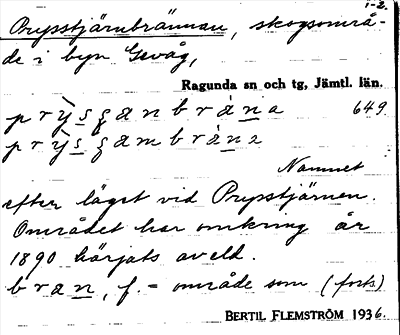 1-2.
Prysstjärnbrännan, skogsområ-
de i byn Gevåg,
Ragunda sn och tg, Jämtl. län.
649
Namnet
efter läget vid Prysstjärnen.
Området har omkring år
1890 härjats av eld.
bran, f. = område som (forts)
BERTIL FLEMSTRÖM 1936.